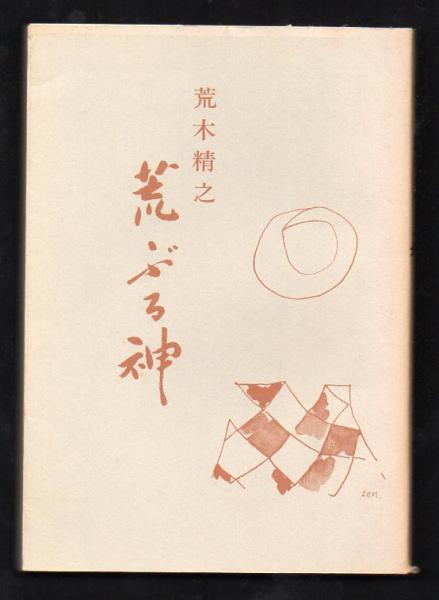 荒木精之
荒ぶる神
zen.